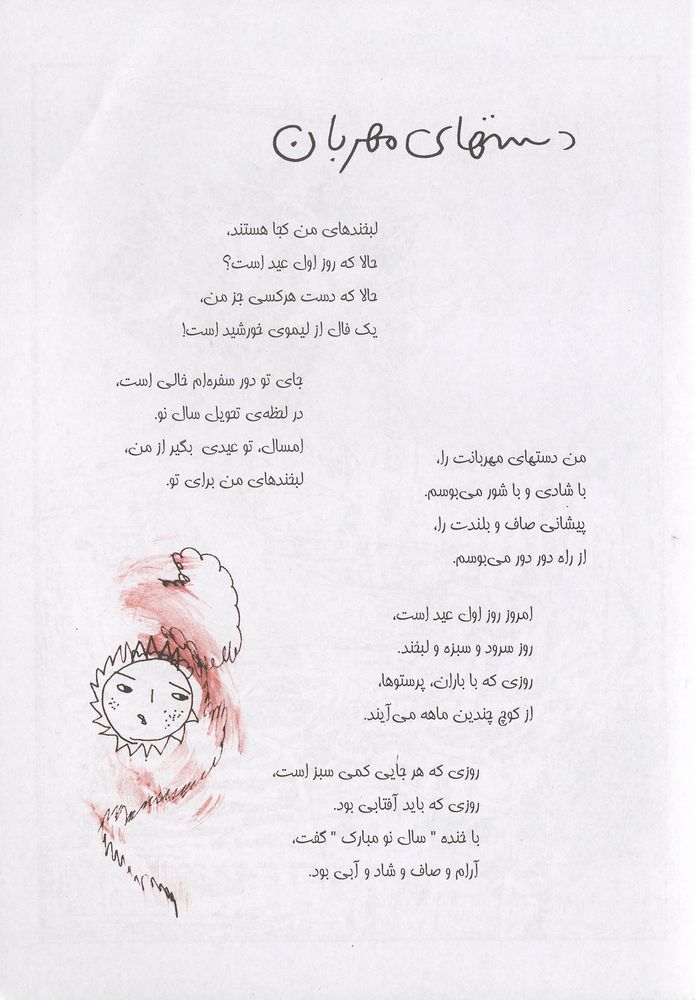 دستهای مهربان
من دستهای مهربانت را،
با شادی و با شور می‌بوسم.
پیشانی صاف و بلندت را،
از راه دور دور می‌بوسم.
امروز روز اول عید است،
روز سرود و سبزه و لبخند.
روزی که با باران، پرستوها،
از کوچ چندین ماهه می‌آیند.
روزی که هر جایی کمی سبز است،
روزی که باید آفتابی بود.
با خنده " سال نو مبارک " گفت،
آرام و صاف و شاد و آبی بود.
لبخندهای من کجا هستند،
حالا که روز اول عید است؟
حالا که دست هرکسی جز من،
یک فال از لیموی خورشید است!
جای تو دور سفره‌ام خالی است،
در لحظه‌ی تحویل سال نو.
امسال، تو عیدی بگیر از من،
لبخندهای من برای تو.